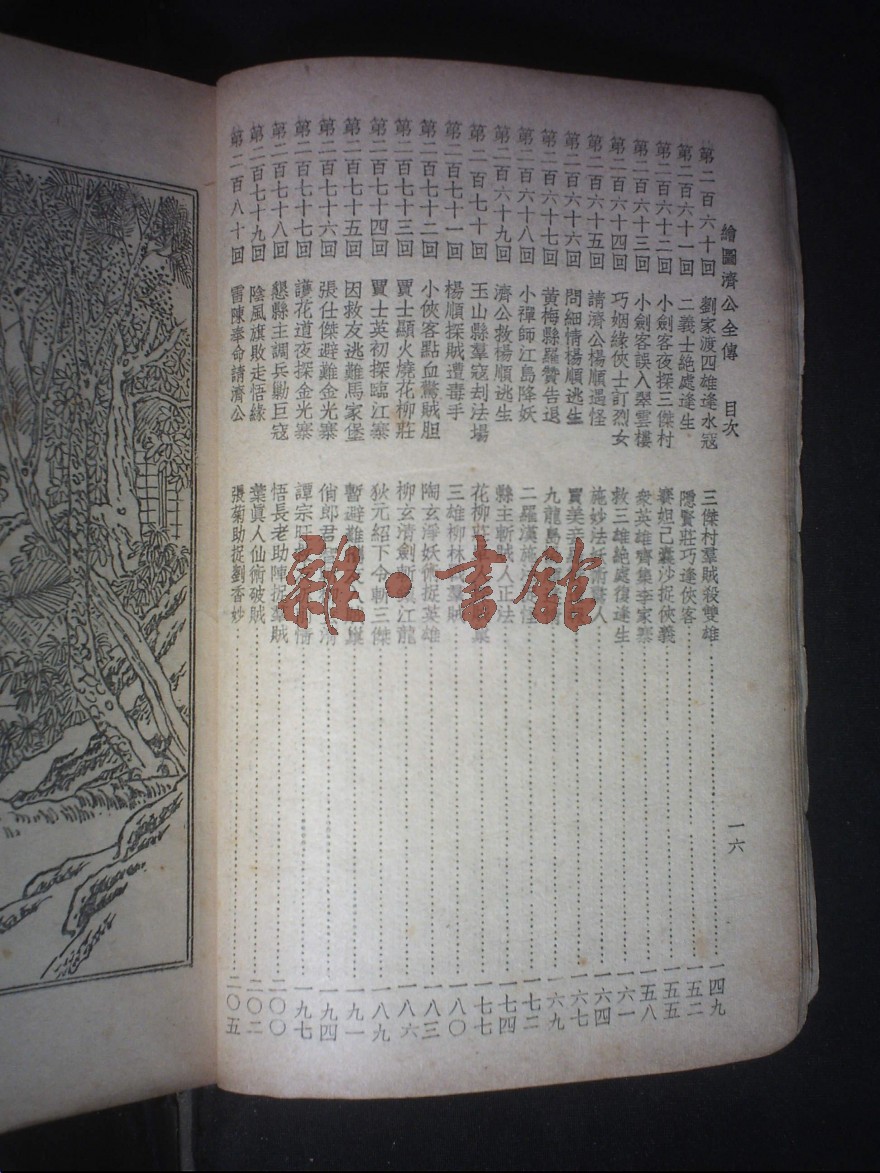 繪圖濟公全傳 目次 一六
第二百六十回 劉家渡四雄逢水寇 三傑村羣賊殺雙雄 一四九
第二百六十一回 二義士絶處逢生 隱賢莊巧逢俠客 一五二
第二百六十二回 小劍客夜探三傑村 賽妲己囊沙捉俠義 一五五
第二百六十三回 小劍客誤入翠雲樓 衆英雄齊集李家寨 一五八
第二百六十四回 巧姻緣俠士訂烈女 救三雄絶處復逢生 一六一
第二百六十五回 請濟公楊順遇怪 施妙法 人 一六四
第二百六十六回 問細情楊順逃生 賈美 一六七
第二百六十七回 黃梅縣羅贊告退 九龍島 一六九
第二百六十八回 小禪師江島降妖 二羅漢施法 怪 一七二
第二百六十九回 濟公救楊順逃生 縣主斬賊人正法 一七四
第二百七十回 玉山縣羣寇刦法場 花柳莊 一七七
第二百七十一回 楊順探賊遭毒手 三雄柳林 羣賊 一八〇
第二百七十二回 小俠客點血驚賊胆 陶玄淨妖術捉英雄 一八三
第二百七十三回 賈士顯火燒花柳莊 柳玄清劍斬 江龍 一八六
第二百七十四回 賈士英初探臨江寨 狄元紹下令斬三傑 一八九
第二百七十五回 因救友逃難馬家堡 暫避難 巢 一九一
第二百七十六回 張仕傑避難金光寨 俏郎君 一九四
第二百七十七回 護花道夜探金光寨 譚宗旺 情 一九七
第二百七十八回 懇縣主調兵勦巨寇 悟長老助陣捉羣賊 二〇〇
第二百七十九回 陰風旗敗走悟緣 葉眞人仙術破賊 二〇二
第二百八十回 雷陳奉命請濟公 張菊助捉劉香妙 二〇五
雜·書館